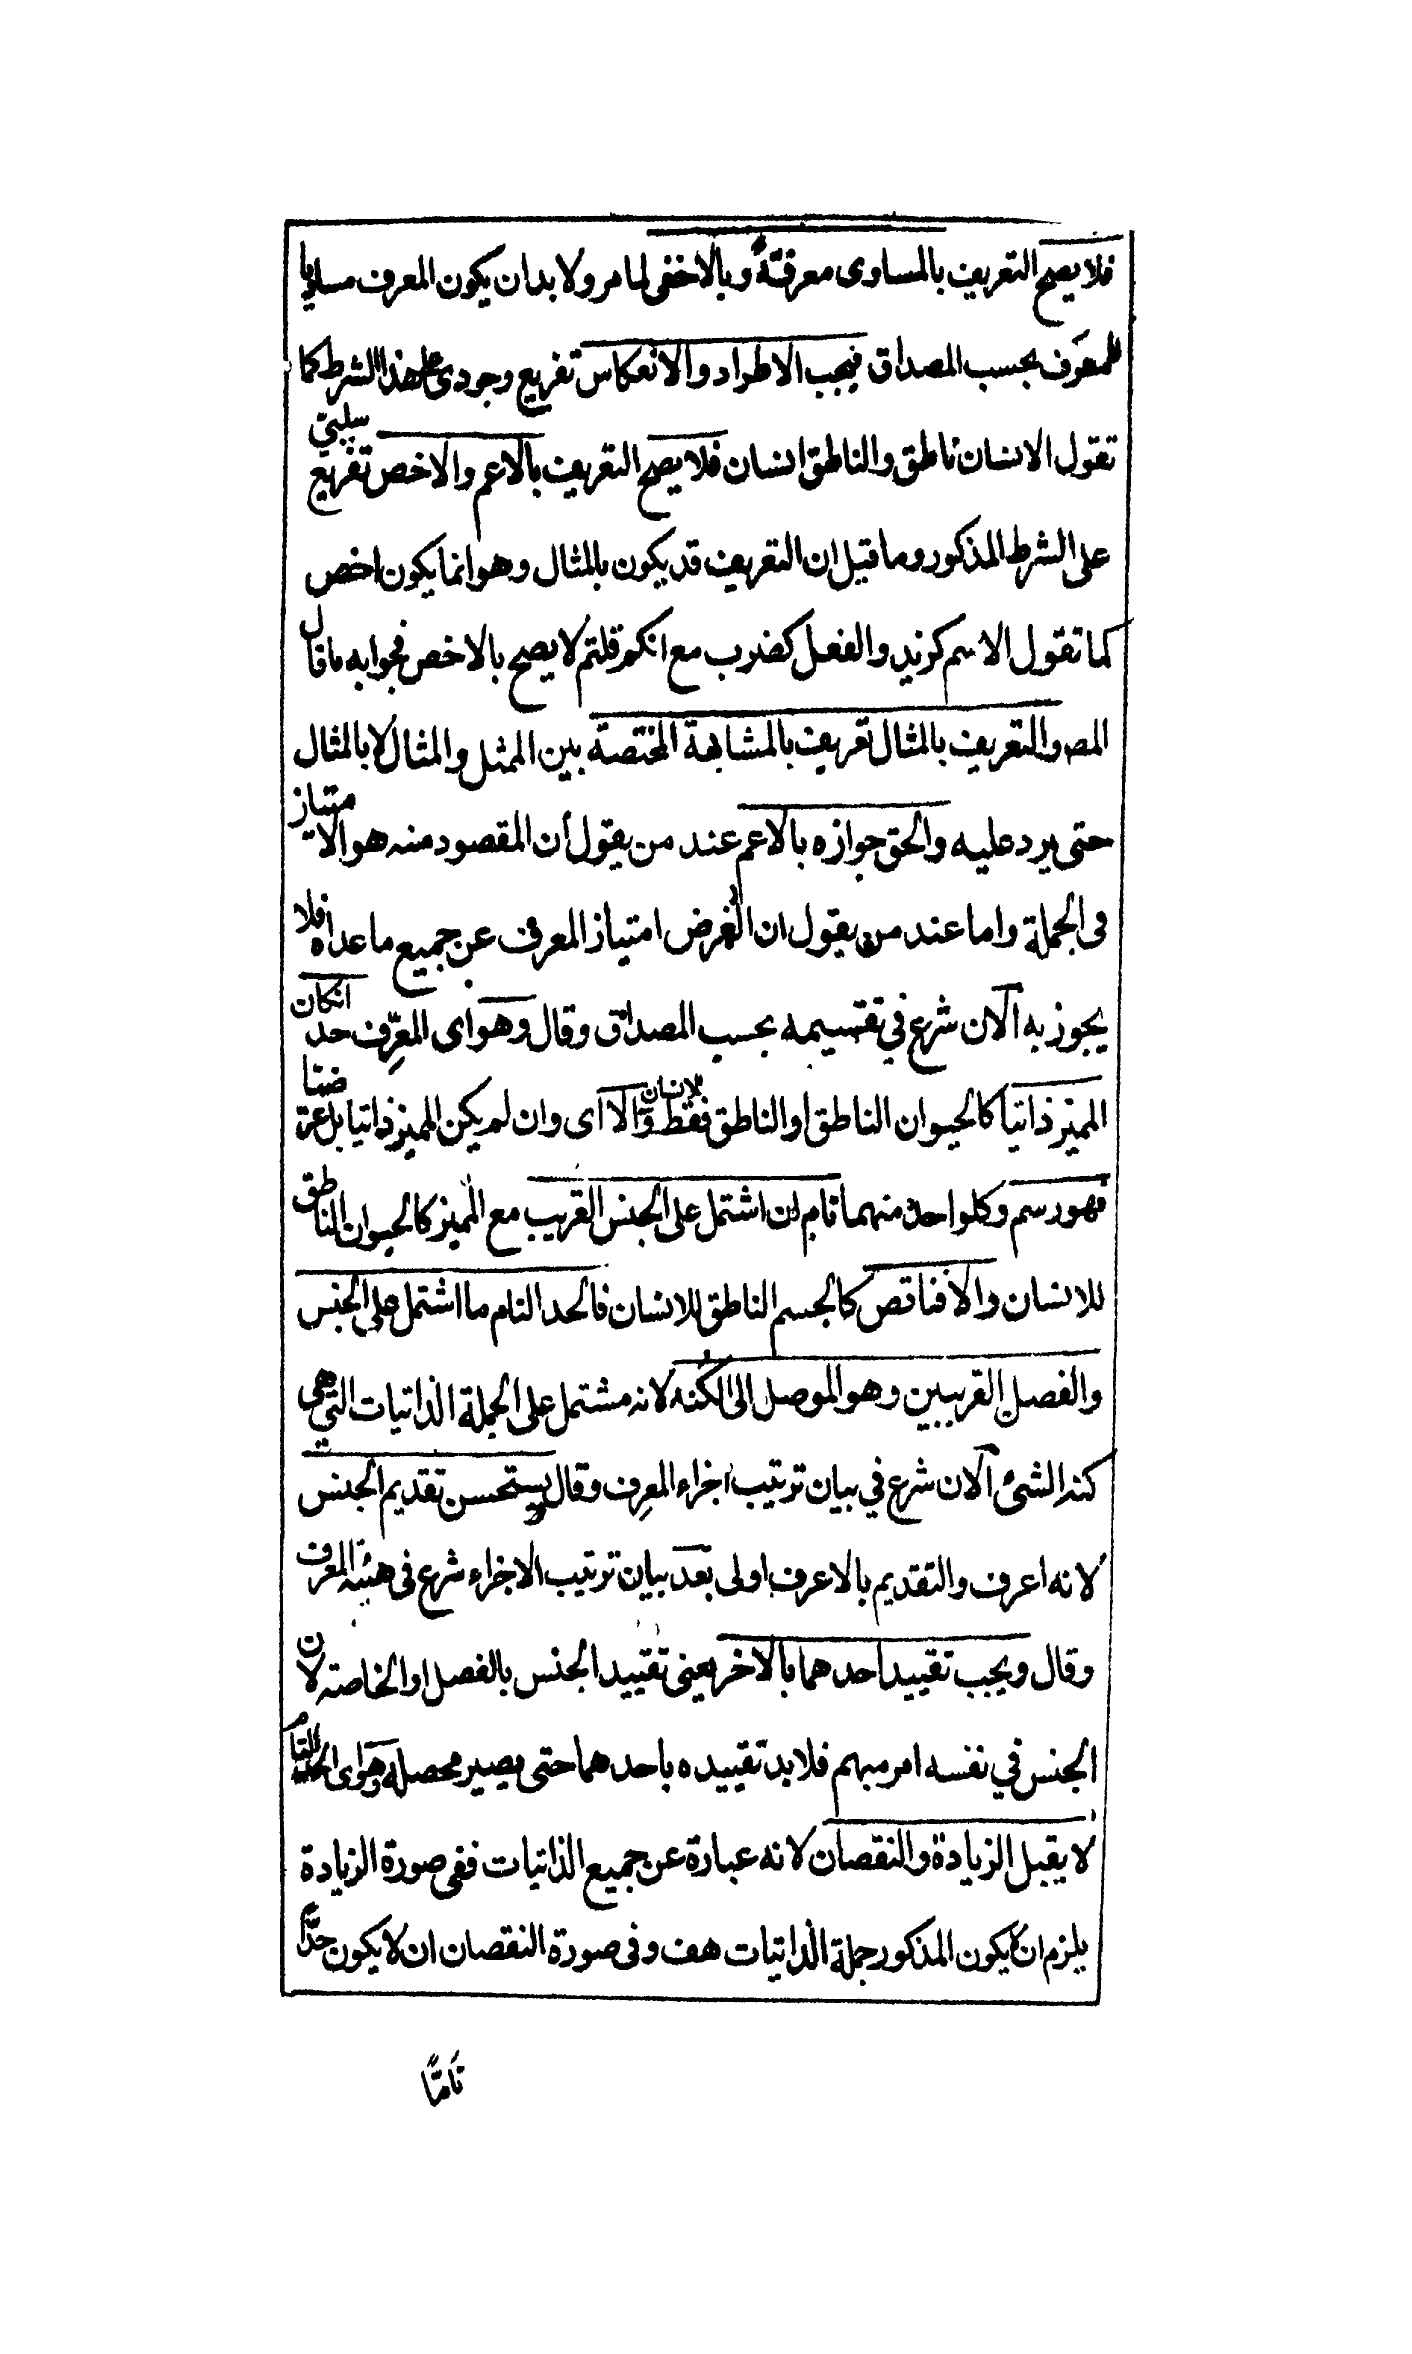 فلا يصح التعريف بالمساوى معرفةً وبالاخفى لما مر ولا بد ان يكون المعرف مساويا
للمعرَف بحسب المصداق فيجب الاطراد والانعكاس تفريع وجودى على هذا الشرط كما
تقول الانسان ناطق والناطق انسان فلا يصح التعريف بالاعم والاخص تفريع سلبىّ
على الشرط المذكور وما قيل ان التعريف قد يكون بالمثال وهو انما يكون اخص
كما تقول الاسم كزيد والفعل كضرب مع انكم قلتم لا يصح بالاخص فجوابه ما قال
المص والتعريف بالمثال تعريف بالمشابهة المختصة بين الممثل والمثال لا بالمثال
حتى يرد عليه والحق جوازه بالاعم عند من يقول أن المقصود منه هو الامتياز
فى الجملة واما عند من يقول ان الغرض امتياز المعرف عن جميع ما عداه فلا
يجوز به الآن شرع في تقسيمه بحسب المصداق وقال وهو اى المعرِّف حد انكان
المميز ذاتيا كالحيوان الناطق او الناطق فقط للانسان والا اى وان لم يكن المميز ذاتيا بل عرضيا
فهو رسم وكل واحد منهما تام ان اشتمل على الجنس القريب مع المميز كالحيوان الناطق
للانسان والا فناقص كالجسم الناطق للانسان فالحد التام ما اشتمل على الجنس
والفصل القريبين وهو الموصل الى الكنه لانه مشتمل على الجملة الذاتيات التى هى
كنه الشئ الآن شرع في بيان ترتيب اجزاء المعرِف وقال يستحسن تقديم الجنس
لانه اعرف والتقديم بالاعرف اولى بعد بيان ترتيب الاجزاء شرع فى هيئة المعرف
وقال ويجب تقييد احدهما بالاخر يعنى تقييد الجنس بالفصل او الخاصته لان
الجنس في نفسه امر مبهم فلا بد تقييده باحدهما حتى يصير محصله وهو اى الحد التام
لا يقبل الزيادة والنقصان لانه عبارة عن جميع الذاتيات ففى صورة الزيادة
يلزم ان لا يكون المذكور جملة الذاتيات هف وفى صورة النقصان ان لا يكون حدًّا
تَامًّا